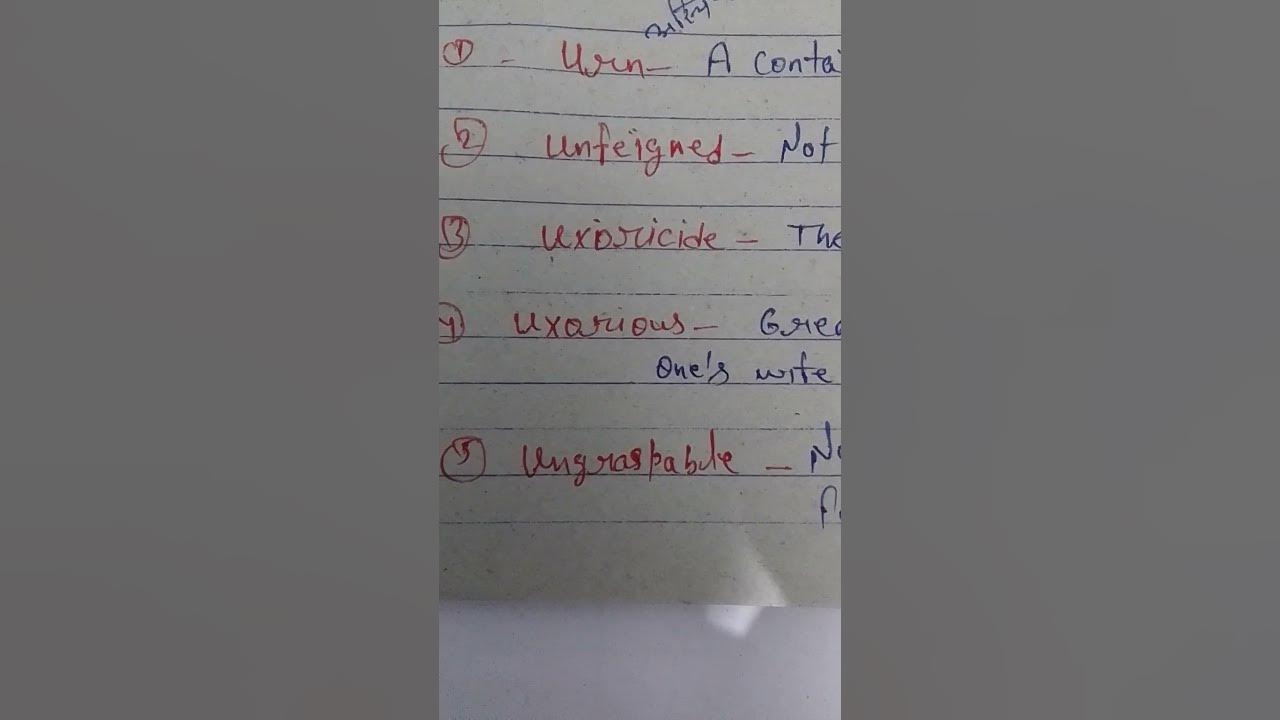 ① - Urn - A contai
② Unfeigned - Not
③ Uxoricide - The
④ Uxorious - Grea
One's wife
⑤ Ungraspable - No